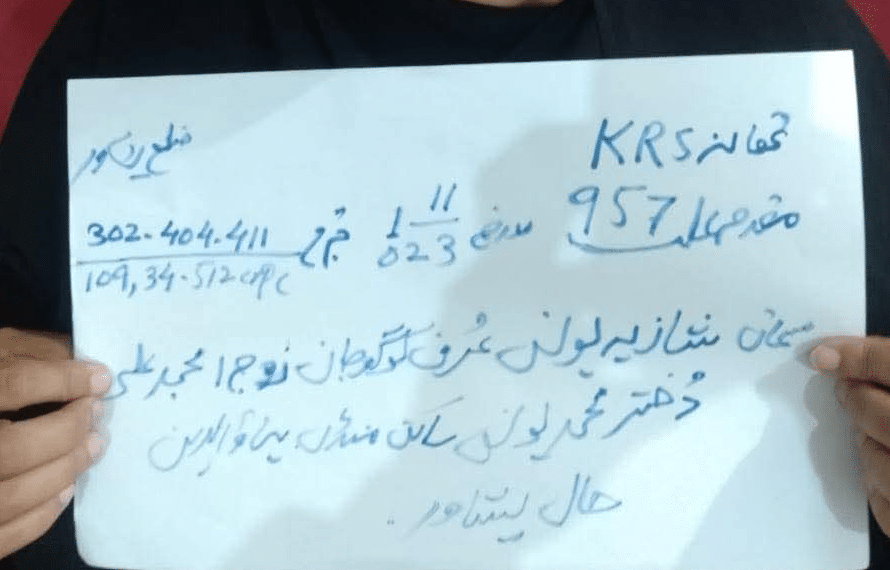 تھانہ KRS ضلع پشاور
مقدمہ علت 957 مورخہ 1 11 023 جرم 302-404-411
109, 34-512 PPC
مسماۃ شازیہ یونس عُرف گوگو جان زوجہ امجد علی
دُختر محمد یونس ساکن منڈی
حال پشاور۔